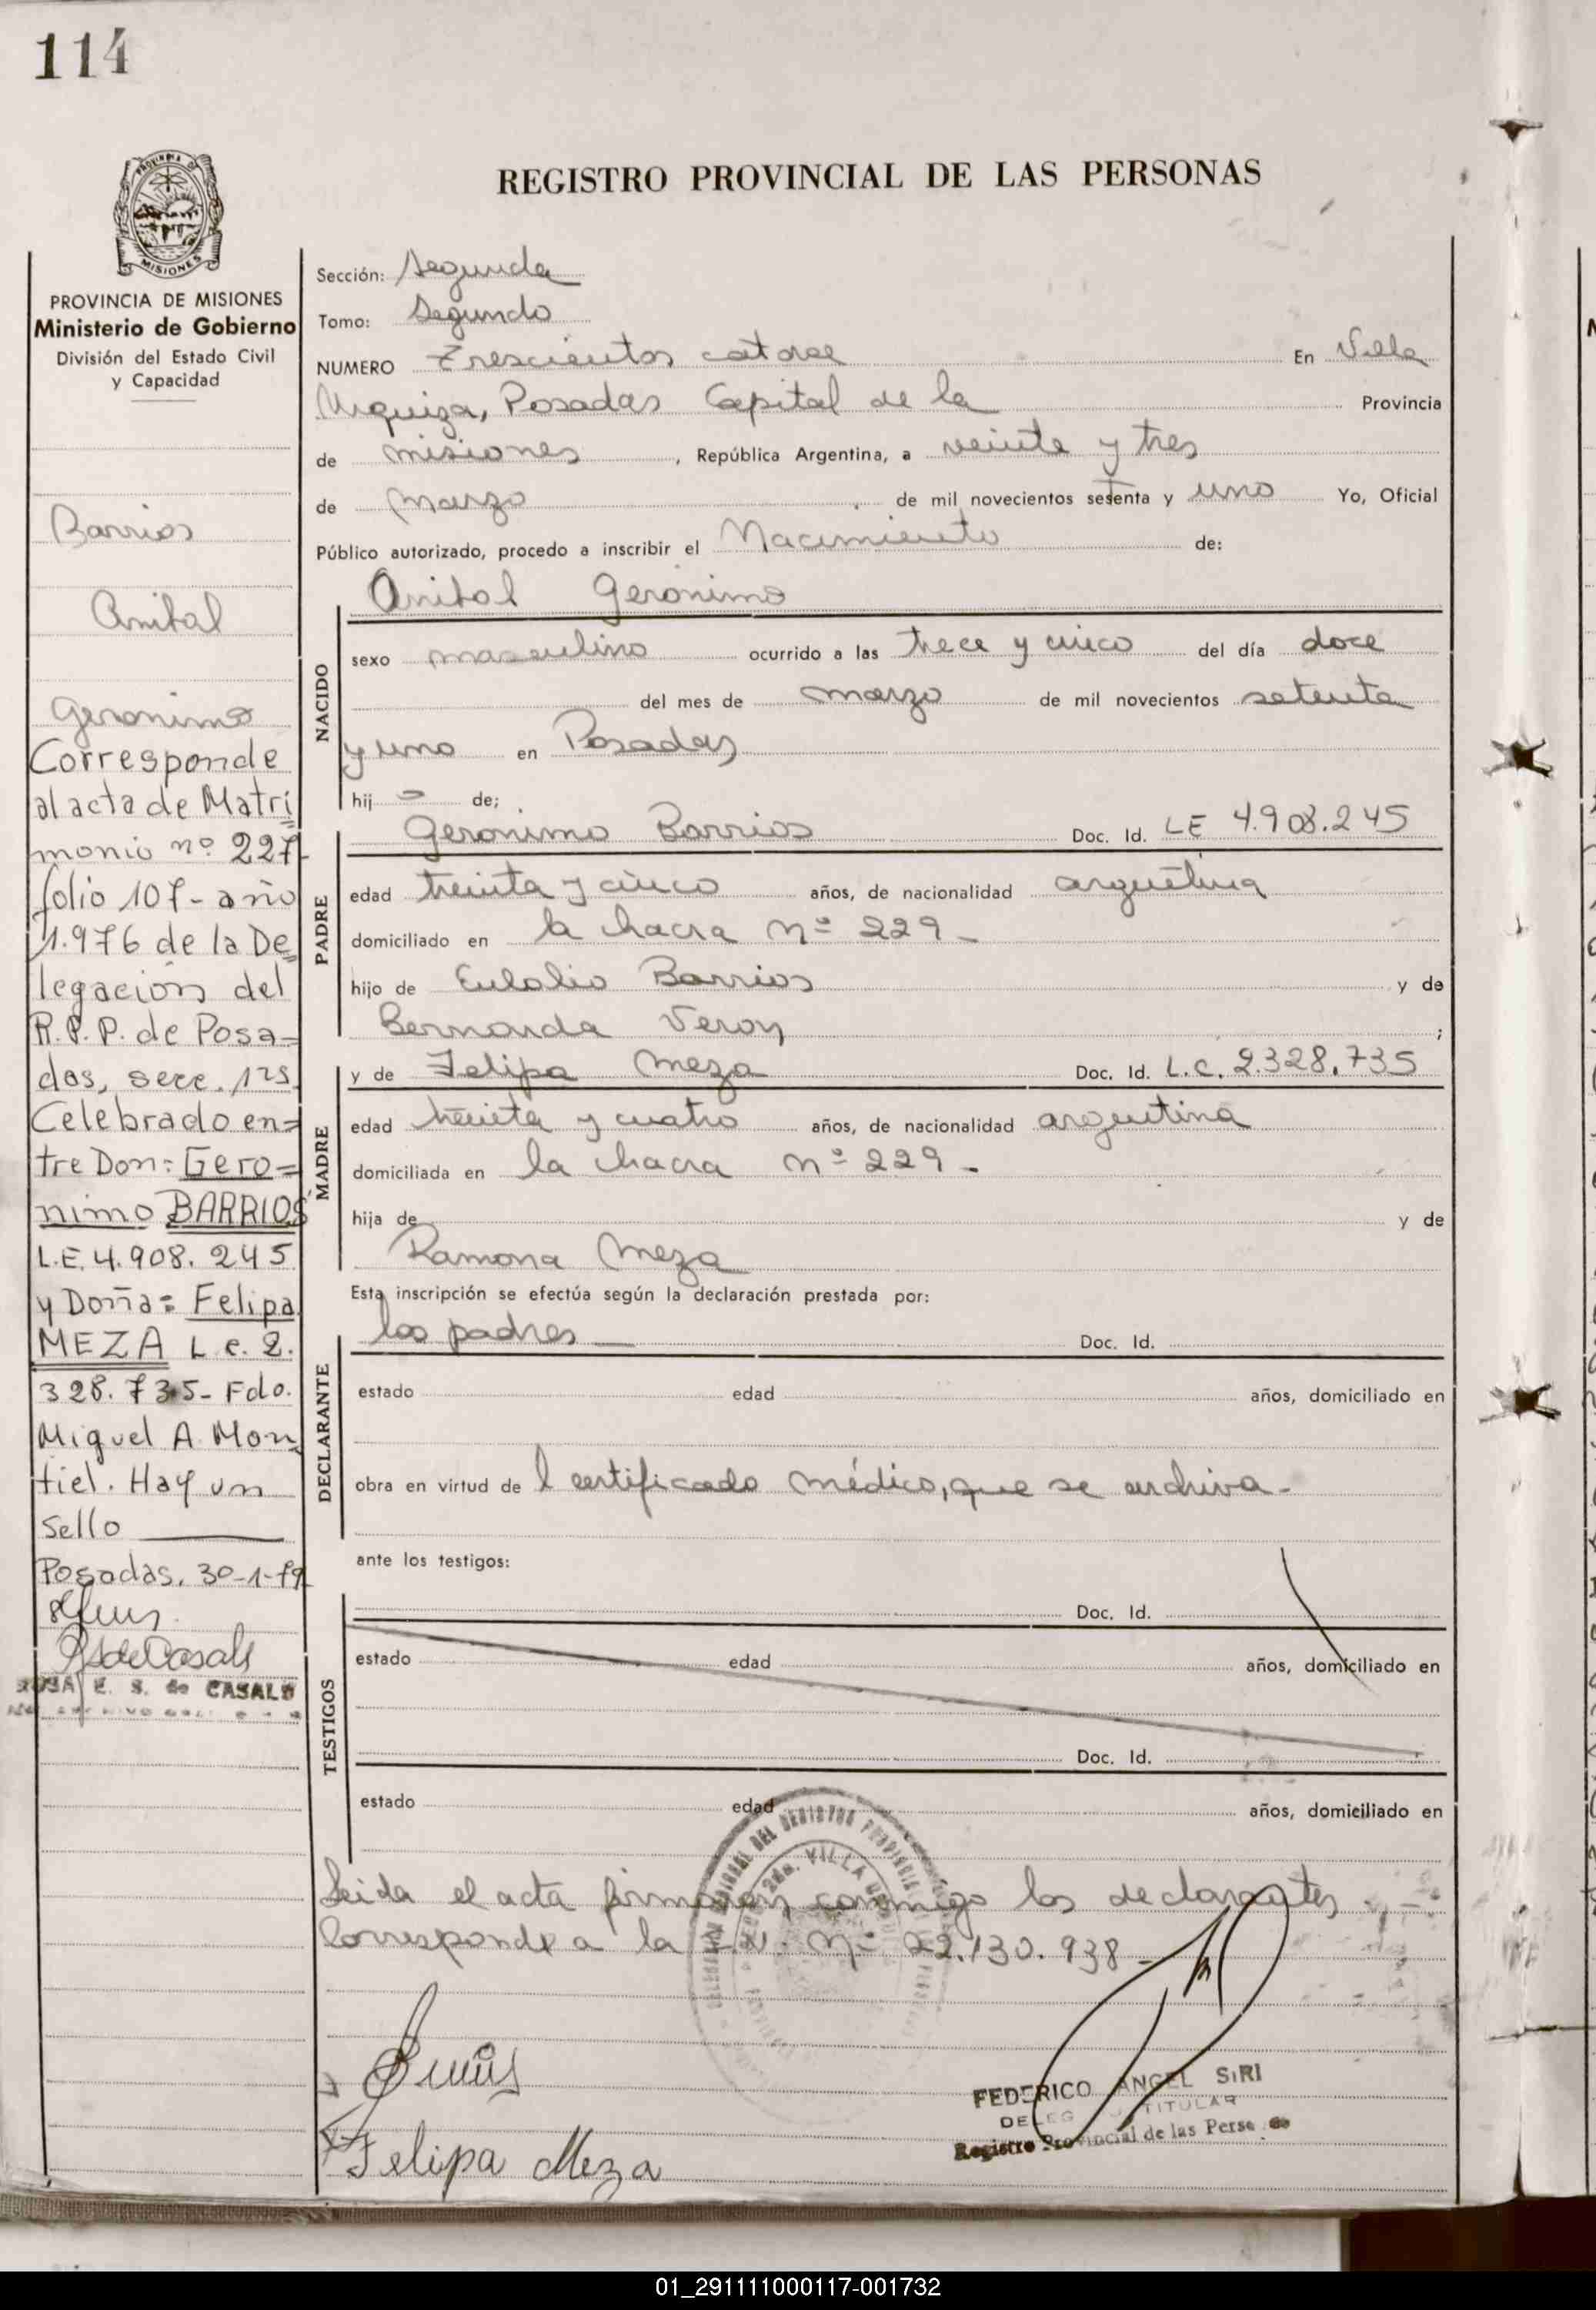 114
REGISTRO PROVINCIAL DE LAS PERSONAS
MISIONES
PROVINCIA DE MISIONES
Ministerio de Gobierno
División del Estado Civil
y Capacidad
Barrios
Anibal
Geronimo
Corresponde
al acta de Matri
monio nº 227
folio 107 - año
1.976 de la De
legación del
R.P.P. de Posa-
das, secc. 1ra.
Celebrado en=
tre Don: Gero=
nimo BARRIOS
L.E. 4.908.245
y Doña = Felipa
MEZA L.C. 2.
328.735 - Fdo.
Miguel A. Mon
tiel. Hay un
sello
Posadas, 30-1-79
ROSA E. S. de CASALS
Sección: Segunda
Tomo: Segundo
NUMERO Trescientos catorce En Villa
Urquiza, Posadas Capital de la Provincia
de misiones , República Argentina, a veinte y tres
de marzo de mil novecientos setenta y uno Yo, Oficial
Público autorizado, procedo a inscribir el Nacimiento de:
Anibal Gerónimo
NACIDO
sexo masculino ocurrido a las trece y cinco del día doce
del mes de marzo de mil novecientos setenta
y uno en Posadas
hij o de;
Geronimo Barrios Doc. Id. LE 4.908.245
PADRE
edad treinta y cinco años, de nacionalidad argentina
domiciliado en la chacra nº 229 -
hijo de Eulalio Barrios y de
Bernarda Veron ;
y de Felipa Meza Doc. Id. L.C. 2.328.735
MADRE
edad treinta y cuatro años, de nacionalidad argentina
domiciliada en la chacra nº 229 -
hija de y de
Ramona Meza
Esta inscripción se efectúa según la declaración prestada por:
los padres Doc. Id.
DECLARANTE
estado edad años, domiciliado en
obra en virtud de l certificado médico, que se archiva -
ante los testigos:
Doc. Id.
TESTIGOS
estado edad años, domiciliado en
Doc. Id.
estado edad años, domiciliado en
Leida el acta firmaron conmigo los declarantes
Corresponde a la nº 22.130.938 -
FEDERICO ANGEL SIRI
TITULAR
Registro Provincial de las Personas
Felipa Meza
01_291111000117-001732